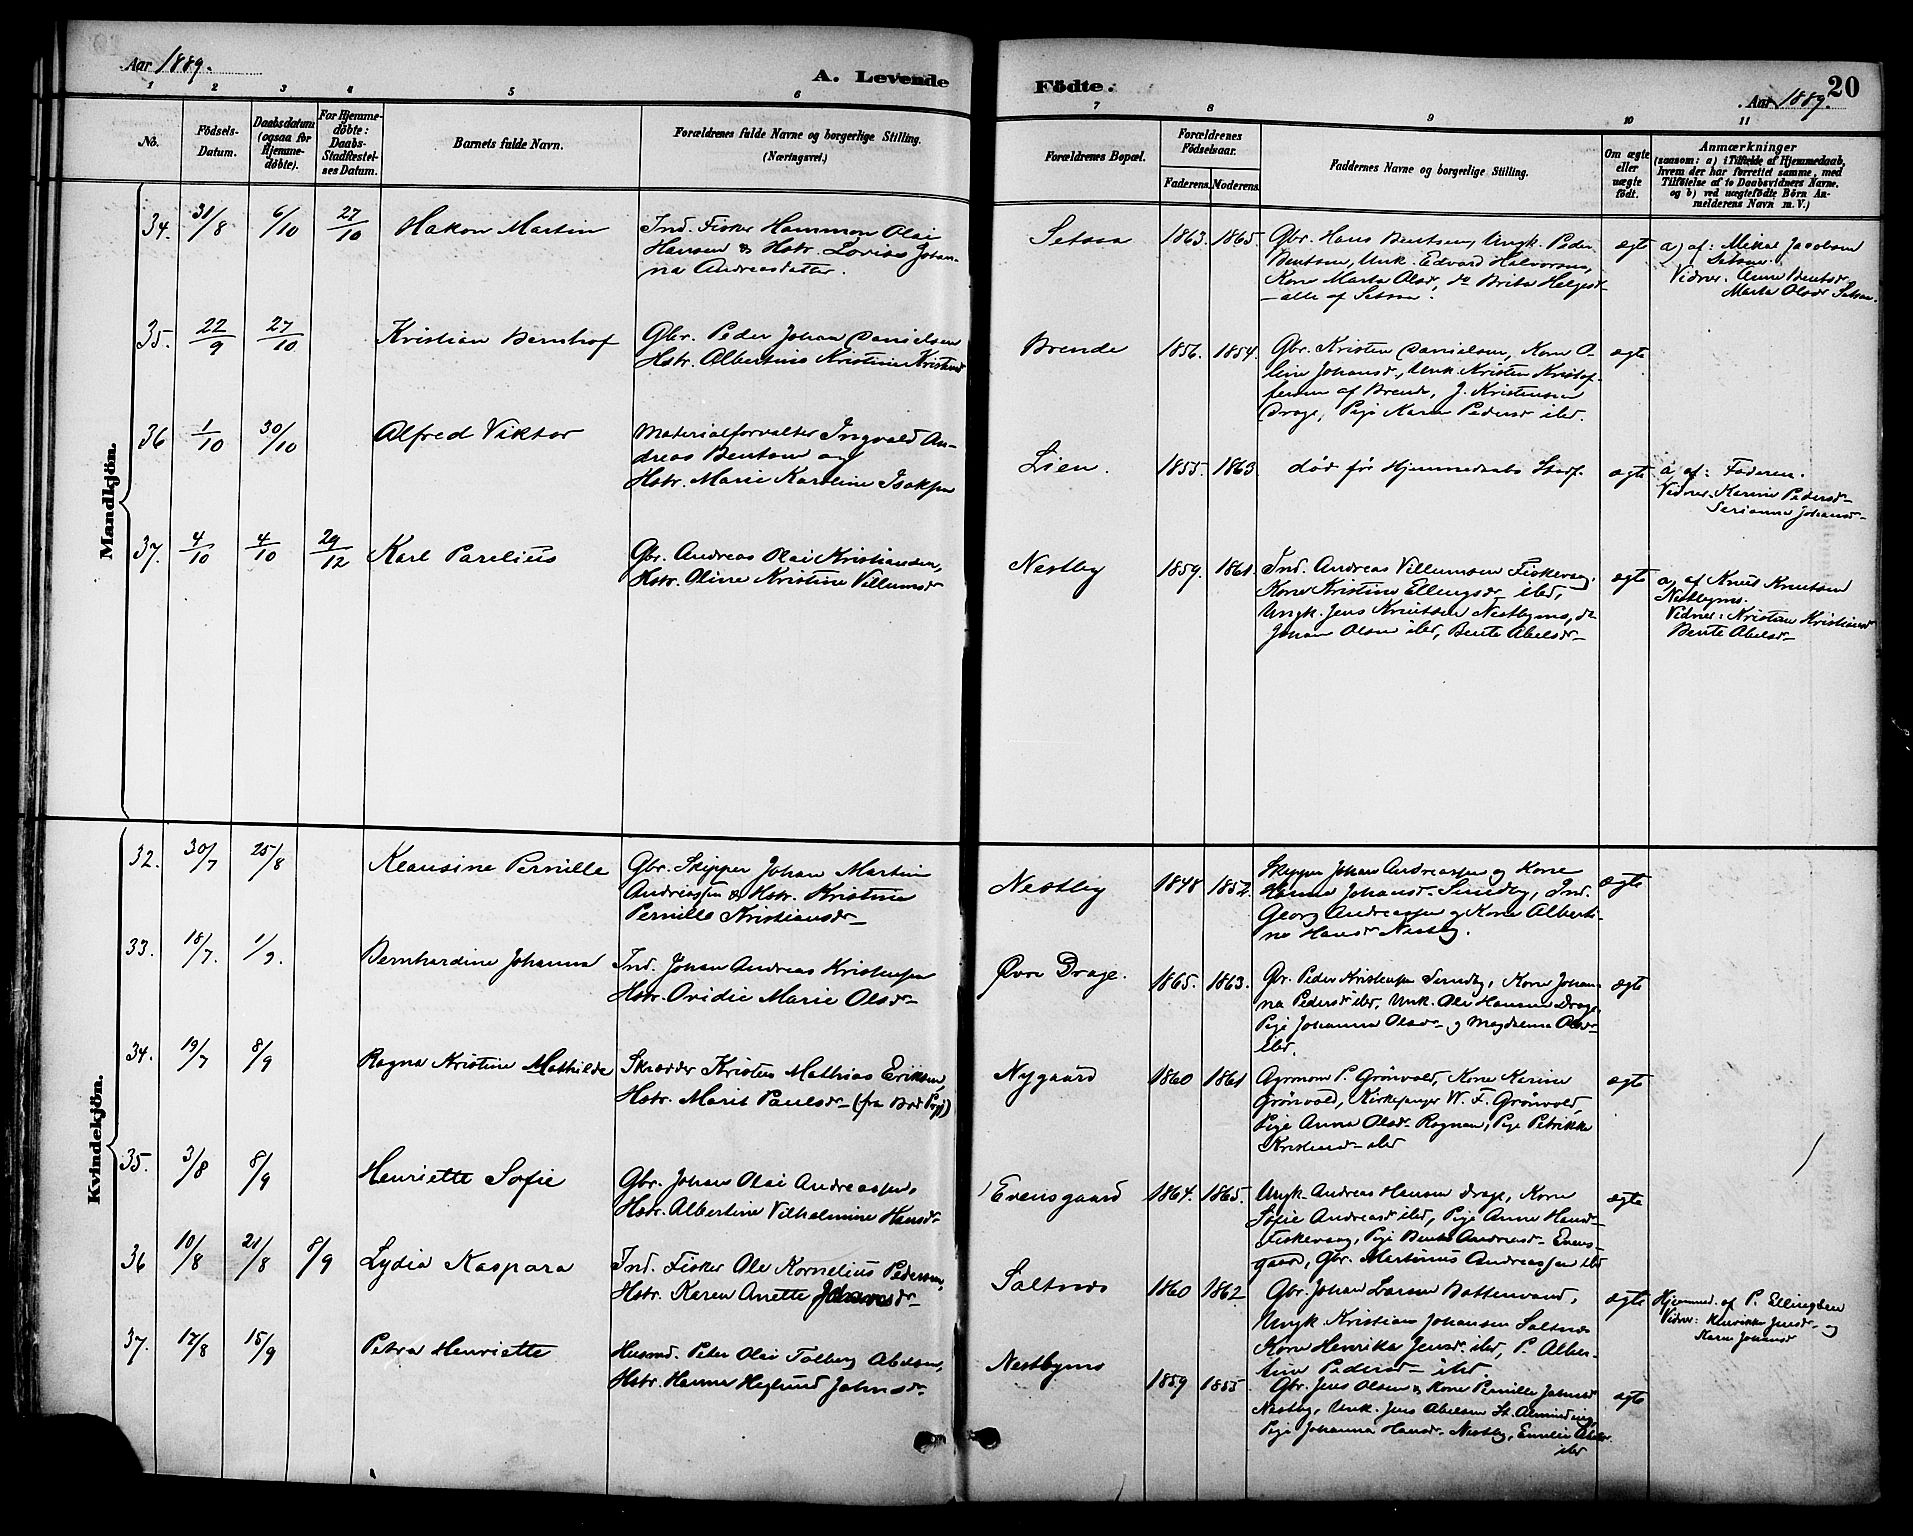 Aar 1889.
A. Levende
Födte.
20
Aar 1889.
1 2 3 4 5 6 7 8 9 10 11
No.
Födsels-
Datum.
Daabsdatum
(ogsaa for
Hjemme-
döbte).
For Hjemme-
döbte:
Daabs-
Stadfæstel-
ses Datum.
Barnets fulde Navn.
Forældrenes fulde Navne og borgerlige Stilling.
(Næringsvei.)
Forældrenes Bopæl.
Forældrenes
Födselsaar.
Faderens. Moderens.
Faddernes Navne og borgerlige Stilling.
Om ægte
eller
uægte
födt.
Anmærkninger
(saasom: a) i Tilfælde af Hjemmedaab,
hvem der har forrettet samme, med
Tilföielse af to Daabsvidners Navne.
og b) ved uægtefödte Börn An-
melderens Navn m. V.)
Mandkjön.
34. 31/8 6/10 27/10 Hakon Martin
Ind. Fisker Hammon Olai
Hansen & Hstr. Lovise Johan-
na Andreasdatter.
Setsaa 1863. 1865.
Gbr. Hans Bentsen, Ungk. Peder
Bentsen, Unk. Edvard Halvorsen,
Kone Marta Olsd, do Brita Helgesd-
- alle af Setsaa.
ægte
a) af: Mikal Jacobsen
Setsaa.
Vidner: Anne Bentsd,
Marta Olsdr Setsaa.
35. 22/9 27/10 Kristian Bernhof
Gbr. Peder Johan Danielsen
Hstr. Albertine Kristine Kristensd
Brende 1856. 1854.
Gbr. Kristen Danielsen, Kone O-
line Johansd., Unk. Kristen Kristof-
fersen af Brende, J. Kristensen
Drage, Pige Karen Pedersd ibd.
ægte
36 1/10 30/10 Alfred Viktor
Materialforvalter Ingvald An-
dreas Bentsen og
Hstr. Marie Karoline Isaksen
Lien. 1855. 1863
død før Hjemmedaabs Stadf.
ægte
a af: Faderen.
Vidner: Karine Pedersd-
Serianna Johansd-
37. 4/10 4/10 29/12 Karl Parelius
Gbr. Andreas Olai Kristiansen,
Hstr. Oline Kristine Villumsd
Nestby 1859. 1861.
Ind. Andreas Villumsen Fiskevaag,
Kone Kristine Ellingsdr ibd,
Ungk. Jens Knutsen Nestbynes, do
Johan Olsen ibd, Bente Abelsd-
ægte
a) af Knut Knutsen
Nestbynes.
Vidner: Kristine Kristiansd
Bente Abelsd-
Kvindekjön.
32. 30/7 25/8 Klausine Pernille
Gbr. Skipper Johan Martin
Andreassen & Hstr. Kristine
Pernille Kristiansdr-
Nestby 1848 1852.
Skipper Johan Andreassen og Kone
Hanna Johansd- Sundby, Ind.
Georg Andreassen og Kone Alberti-
ne Hansd Nestby.
ægte
33. 18/7. 1/9. Bernhardine Johanna
Ind. Johan Andreas Kristensen
Hstr. Ovidie Marie Olsdr-
Øvre Drage. 1865. 1863.
Gbr. Peder Kristensen Sundby, Kone Johan-
na Pedersd ibd, Unk. Ole Hansen Drage,
Pige Johanna Olsdr- og Magdalena Olsdr-
ibd.
ægte
34. 19/7 8/9 Ragna Kristine Mathilde
Skrædder Kristen Mathias Eriksen,
Hstr. Marit Paulsdr- (fra Bod Pgj)
Nygaard 1860 1861
Agronom P. Grönvold, Kone Karine
Grönvold, Kirkesanger W. F. Grönvold,
Pige Anne Olsdr- Rognan, Pige Petrikke
Kristensd- ibd
ægte
35. 3/8 8/9 Henriette Sofie
Gbr. Johan Olai Andreassen,
Hstr. Albertine Vilhelmine Hansdr-
Evensgaard 1864. 1865.
Ungk. Andreas Hansen Drage, Kone
Sofie Andreasd ibd, Pige Anne Hansd-
Fiskevaag, Pige Bente Andreasd- Evens-
gaard, Gbr. Martinus Andreassen ibd
ægte
36 10/8 21/8 8/9 Lydia Kaspara
Ind. Fisker Ole Kornelius Pedersen,
Hstr. Karen Anette Johansdr-
Saltnes 1860 1862
Gbr. Johan Larsen Bottenvand,
Ungk. Kristian Johansen Saltnes
Kone Henrikke Jensd. ibd, P. Alber-
tine Pedersd- ibd.
ægte
Hjemmed. af P. Ellingsen
Vidner: Henrikke Jensd- og
Karen Johansd
37. 17/8 15/9 Petra Henriette
Husmd. Peter Olai Tolberg Abelsen,
Hstr. Hanna Heglund Johnsdr-
Nestbynes 1859 1855.
Gbr. Jens Olsen & Kone Pernille Johnsd
Nestby, Unk. Jens Abelsen St. Almindning,
Pige Johanna Hansd- Nestby, Emelie Abelsr.
ibd
ægte